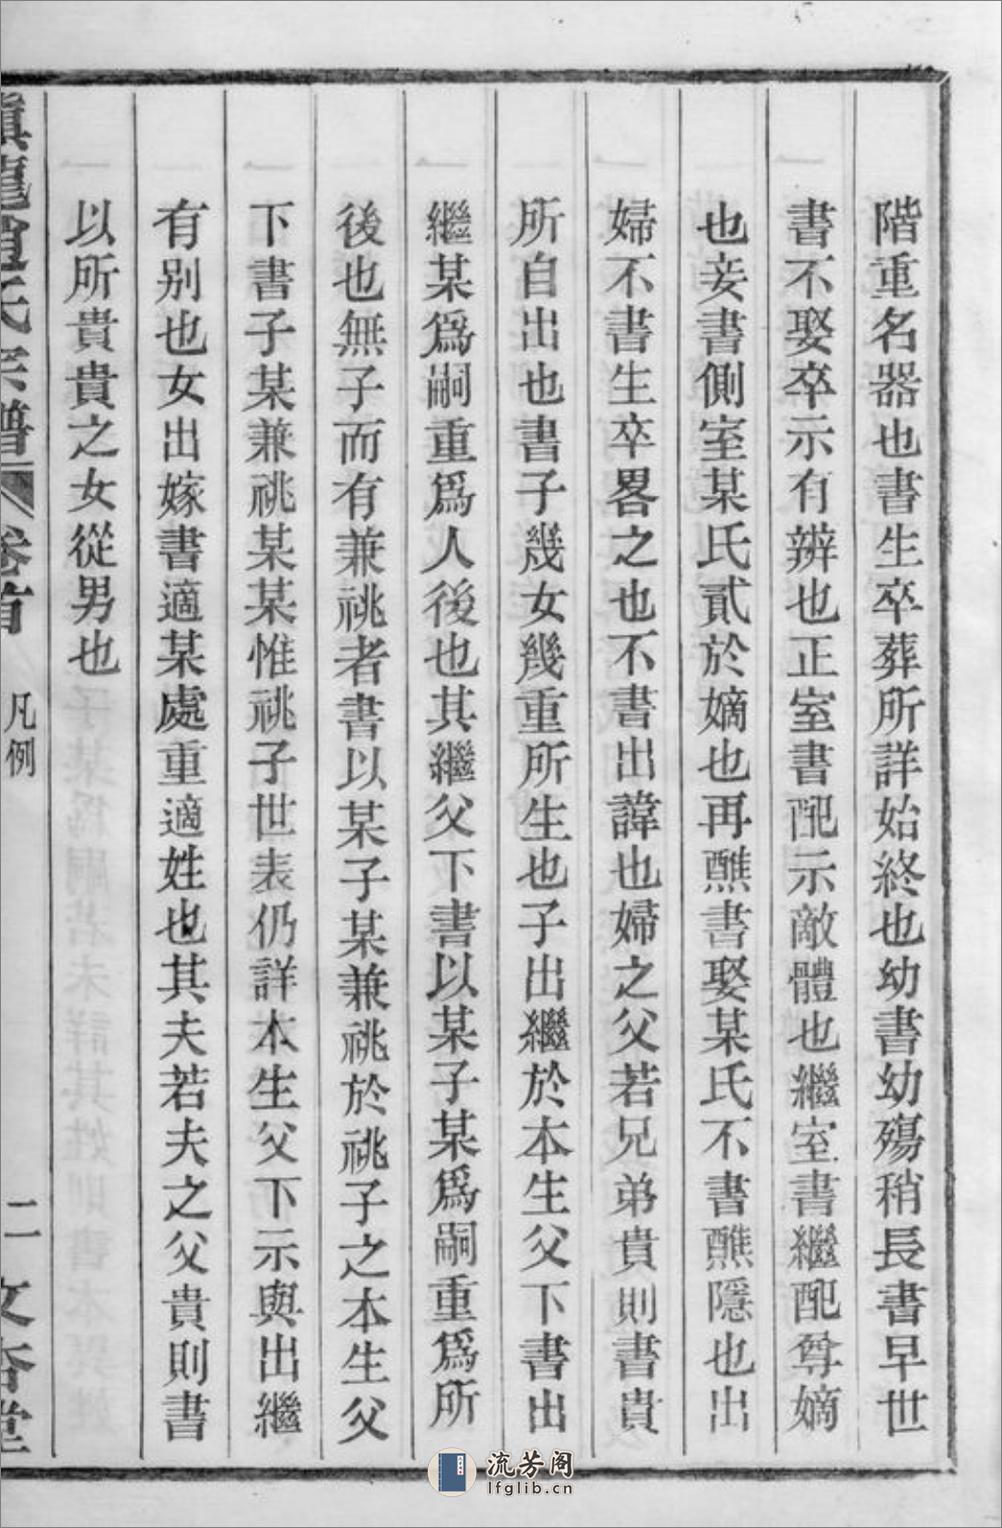 階重名器也書生卒葬所詳始終也幼書幼殤稍長書早世
書不娶卒示有辨也正室書配示敵體也繼室書繼配尊嫡
也妾書側室某氏貳於嫡也再醮書娶某氏不書醮隱也出
婦不書生卒畧之也不書出諱也婦之父若兄弟貴則書貴
所自出也書子幾女幾重所生也子出繼於本生父下書出
繼某爲嗣重爲人後也其繼父下書以某子某爲嗣重爲所
後也無子而有兼祧者書以某子某兼祧於祧子之本生父
下書子某兼祧某某惟祧子世表仍詳本生父下示與出繼
有别也女出嫁書適某處重適姓也其夫若夫之父貴則書
以所貴貴之女從男也
龍 氏宗譜 卷首 凡例 二 文杏堂
流芳阁
lfglib.cn